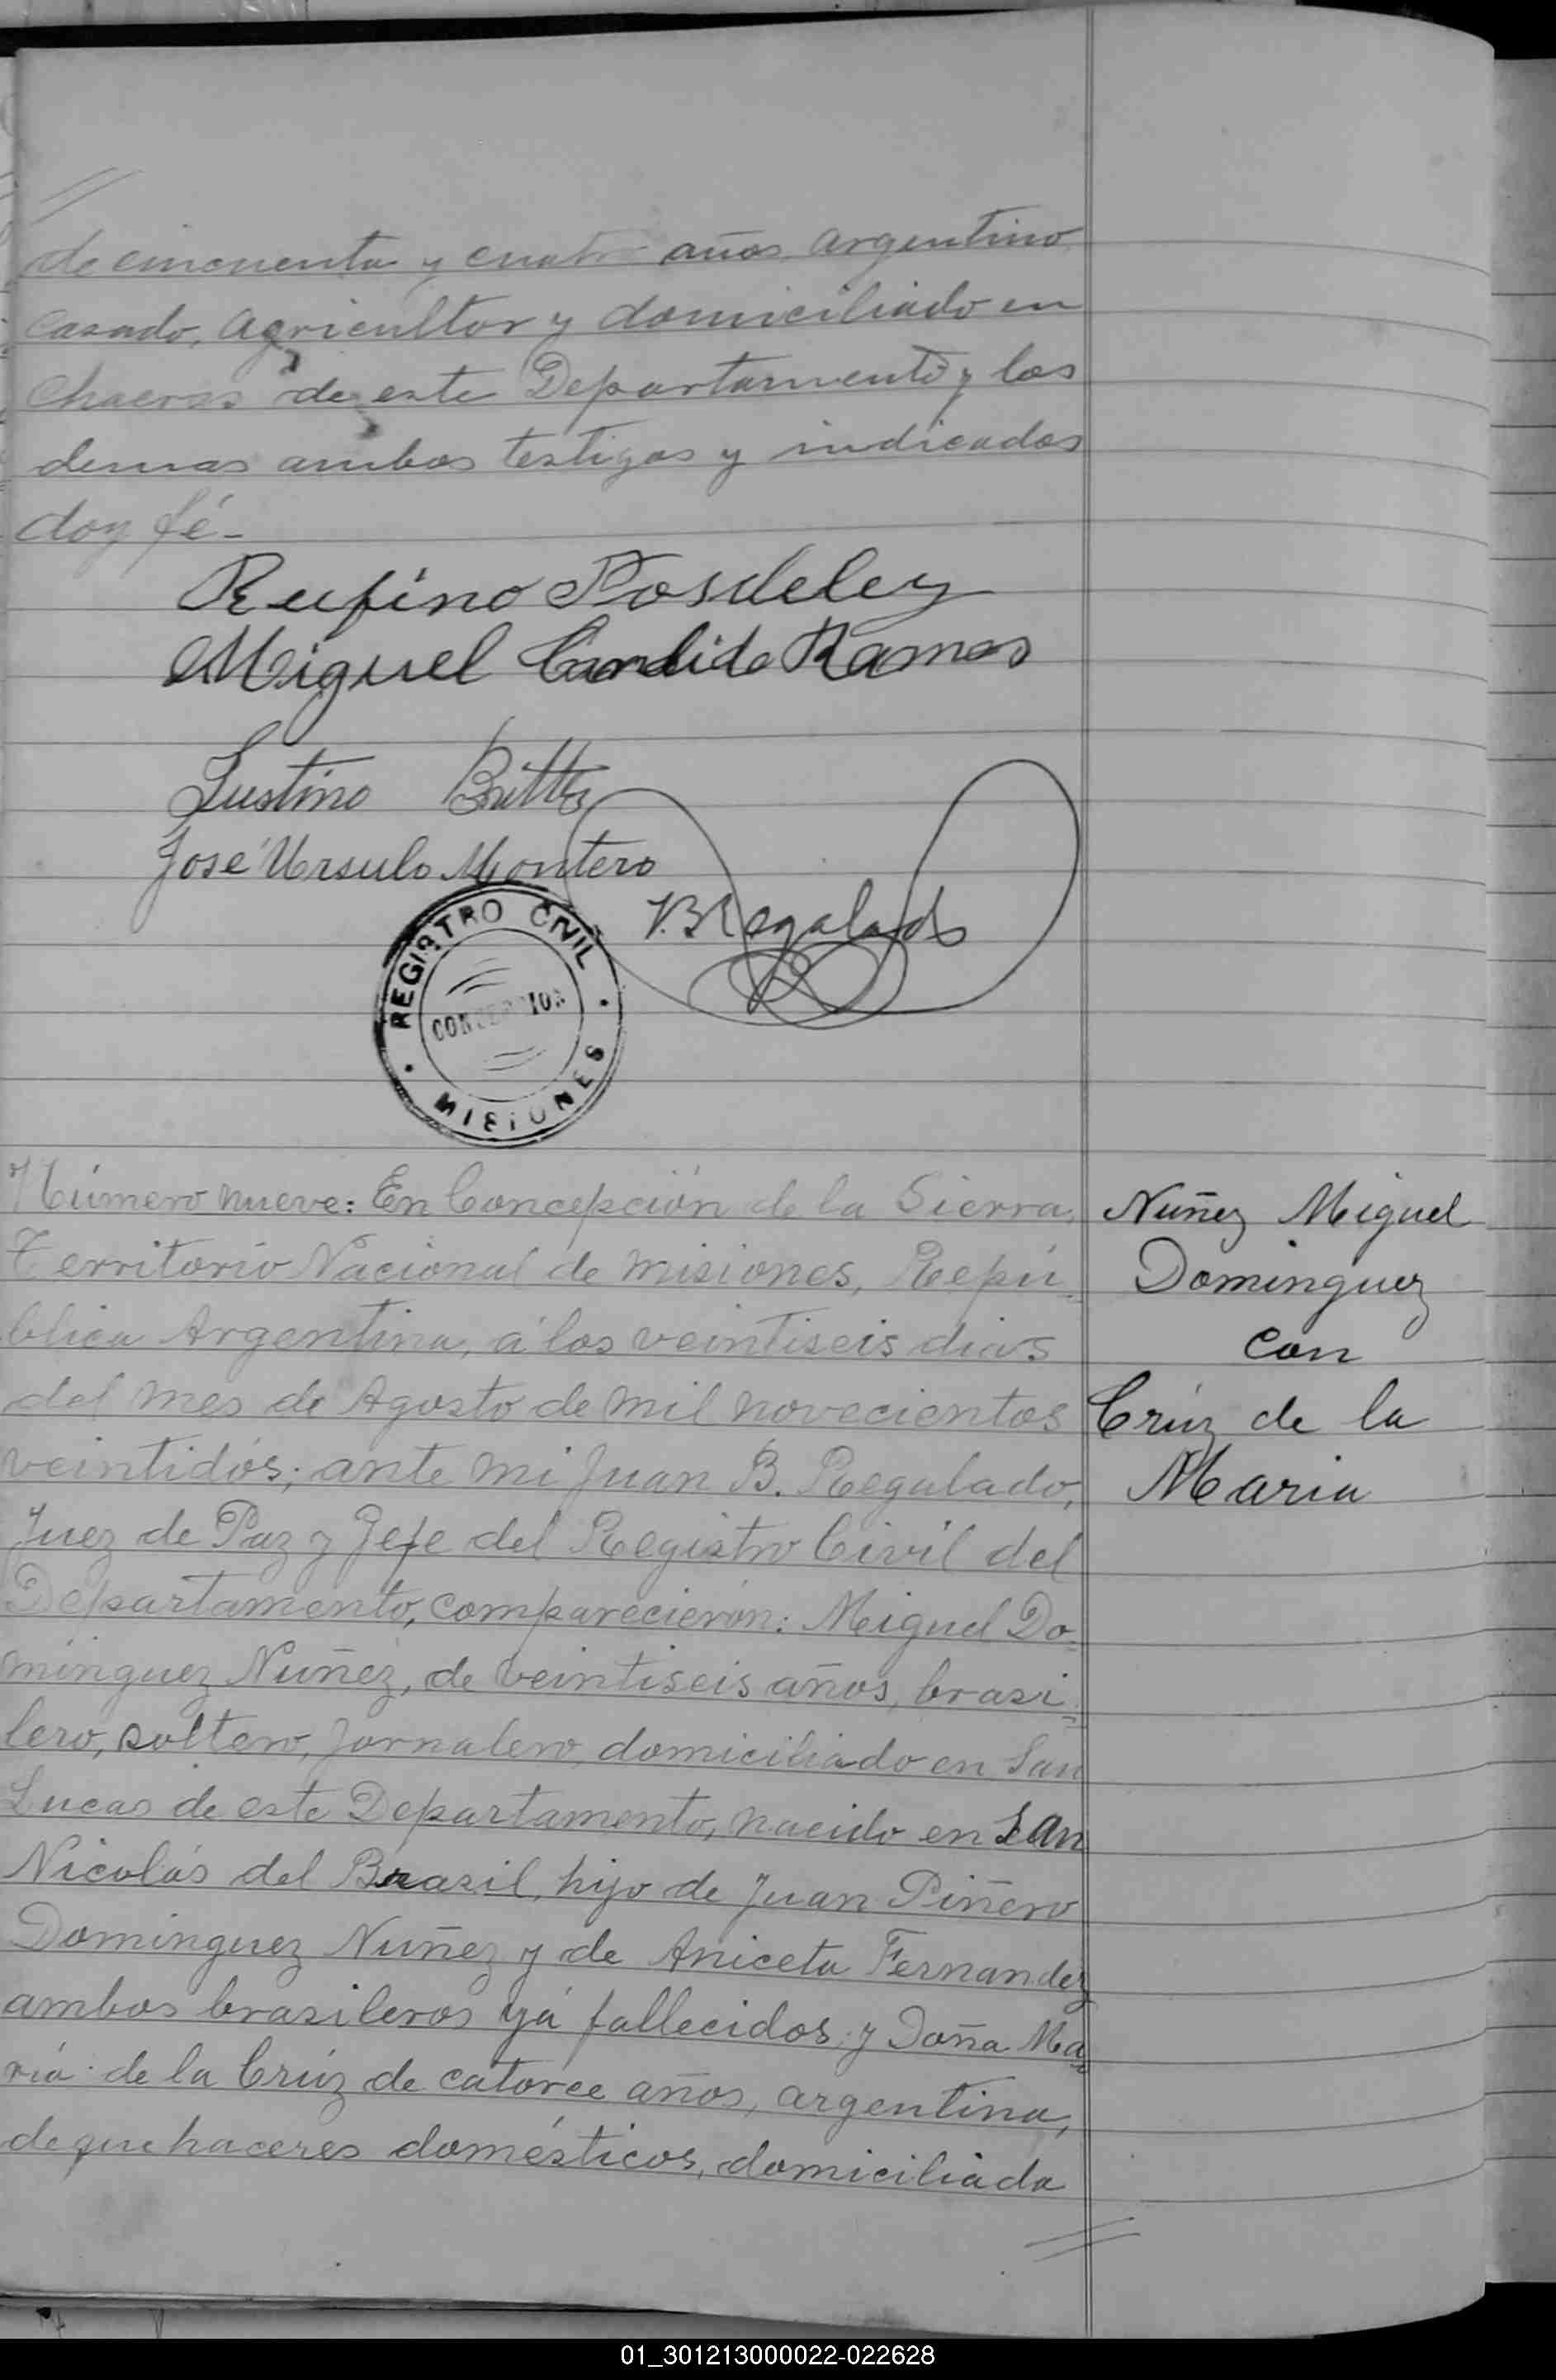 de cincuenta y cuatro años, argentino
casado, agricultor y domiciliado en
Chacras de este Departamento y los
demas ambos testigos y indicados
doy fé-
Rufino Posdeley
Miguel Candido Ramos
Justino Britto
José Ursulo Montero
J.B.Regalado
REGISTRO CIVIL
CONCEPCION
MISIONES
Número nueve: En Concepción de la Sierra,
Territorio Nacional de Misiones, Repú=
blica Argentina, á los veintiseis dias
del mes de Agosto de mil novecientos
veintidós; ante mi Juan B. Regalado,
Juez de Paz y Jefe del Registro Civil del
Departamento, comparecierón: Miguel Do=
minguez Nuñez, de veintiseis años, brasi=
lero, soltero, jornalero, domiciliado en San
Lucas de este Departamento, nacido en San
Nicolás del Brazil, hijo de Juan Piñero
Dominguez Nuñez y de Aniceta Fernandez
ambos brasileros yá fallecidos; y Doña Ma=
ria de la Crúz de catorce años, argentina,
de quehaceres domésticos, domiciliada
Nuñez Miguel
Dominguez
con
Crúz de la
Maria
01_301213000022-022628